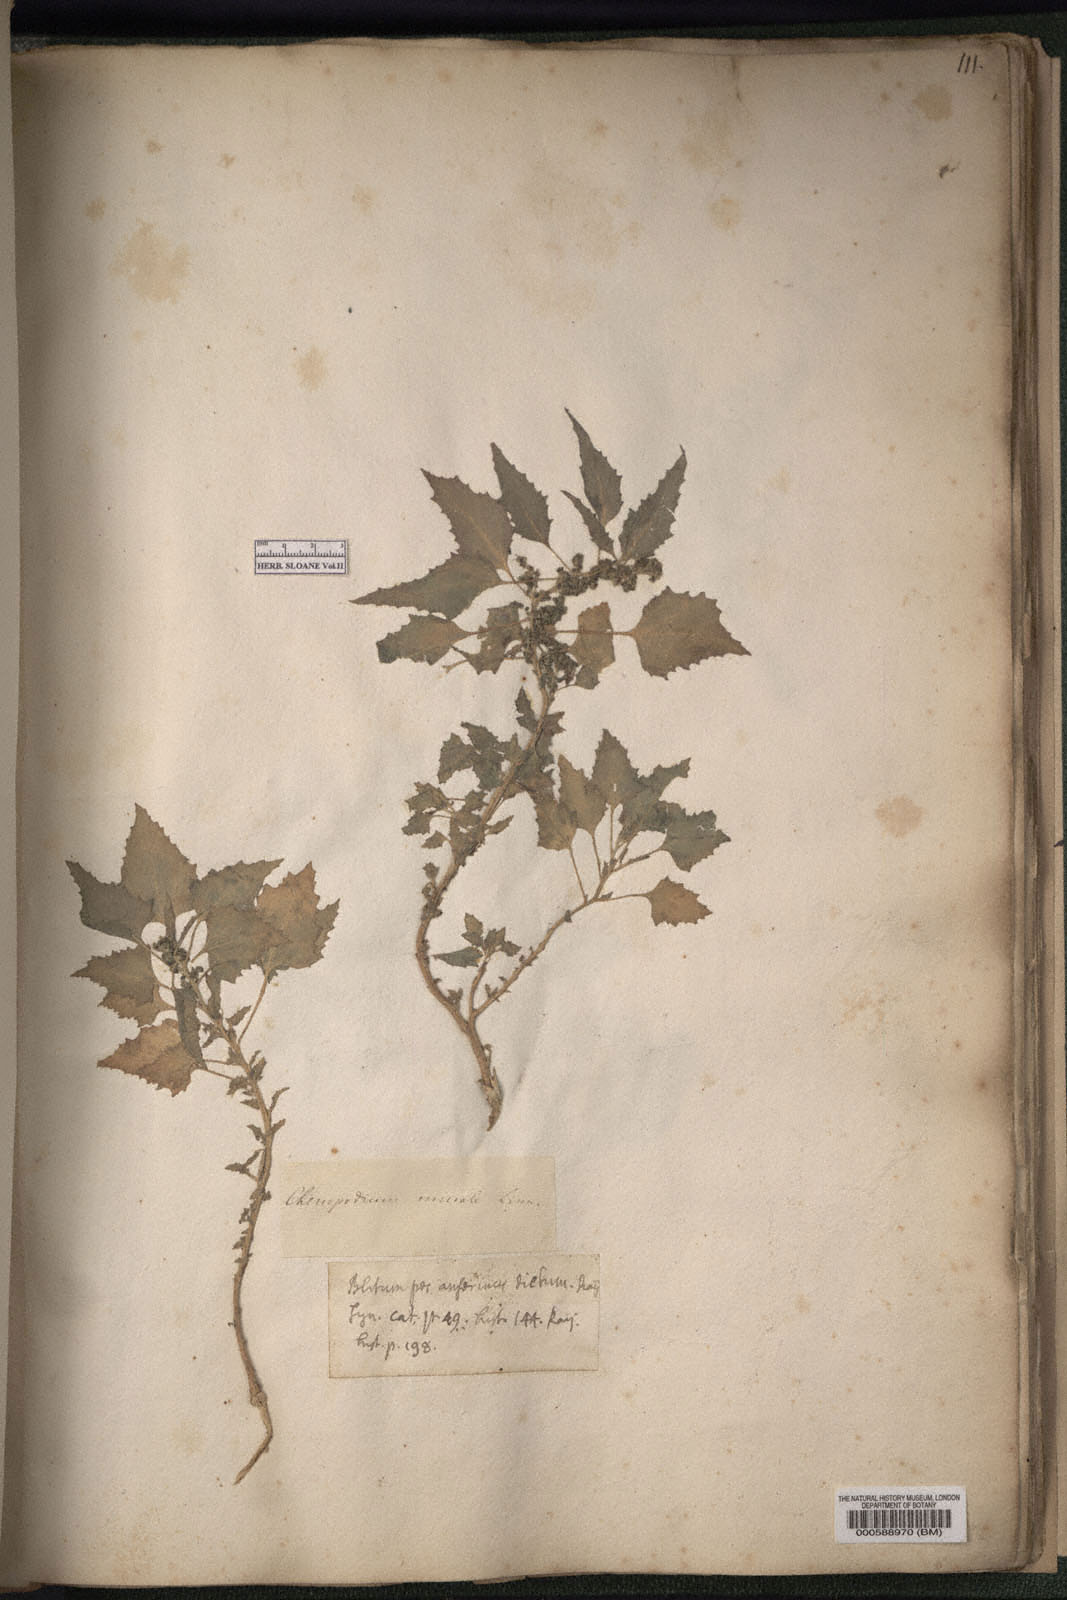 111.
mm 1 2 3
HERB. SLOANE Vol.II
Chenopodium murale Linn.
Blitum pes anserinus dictum. Raij
Syn. cat. pt 49. hist. 144. Raij.
hist. p. 198.
THE NATURAL HISTORY MUSEUM, LONDON
DEPARTMENT OF BOTANY
000588970 (BM)